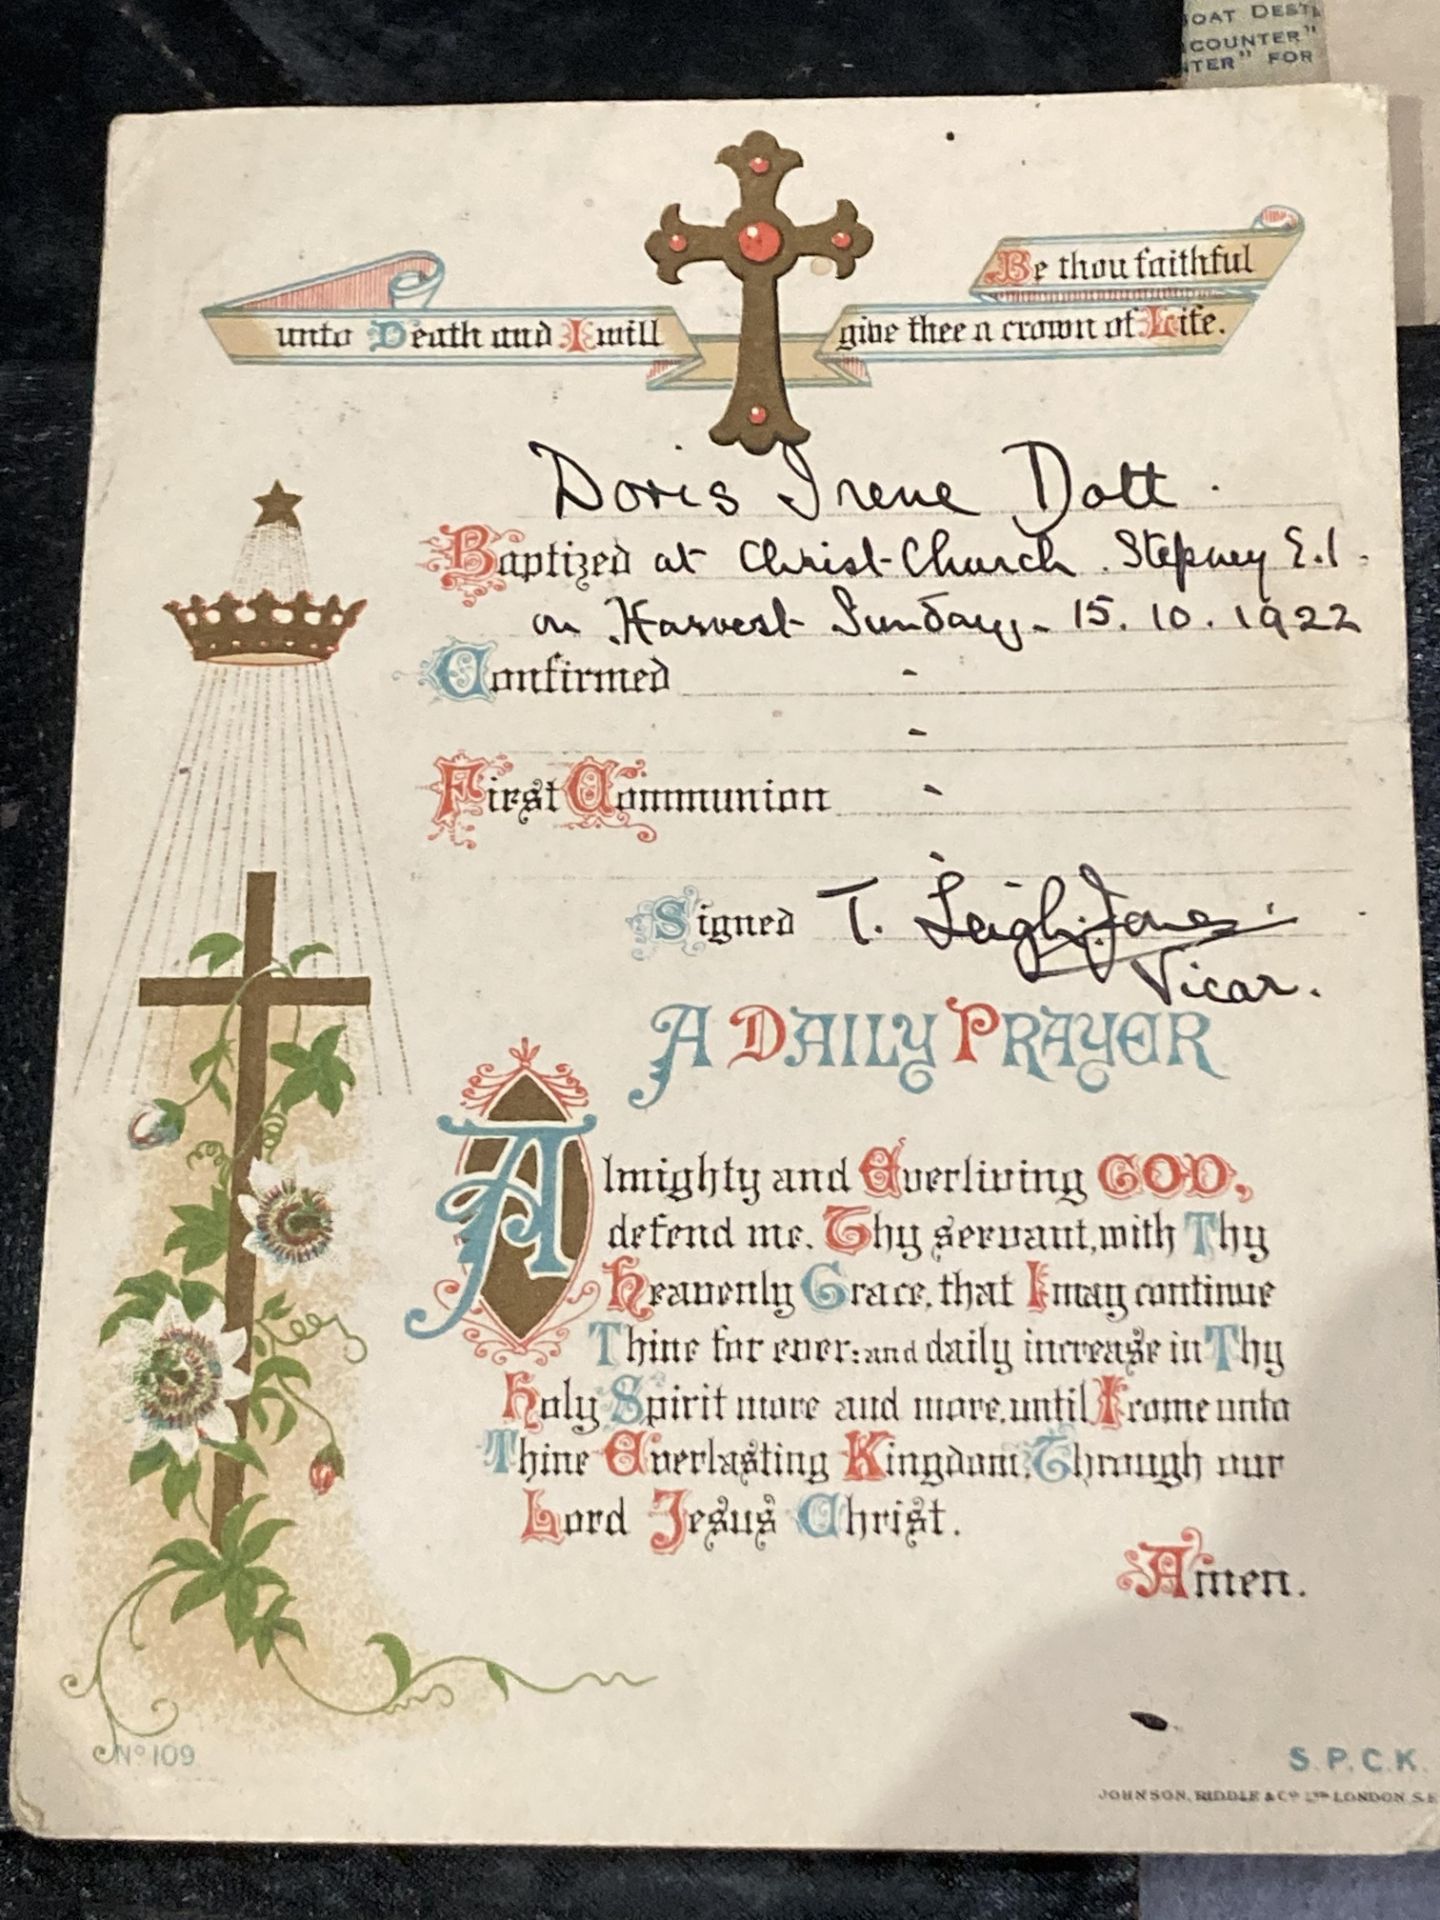 OAT DEST
COUNTER"
TER" FOR
Be thou faithful
unto Death and I will give thee a crown of Life.
Doris Irene Dott.
Baptized at Christ-Church. Stepney E.1.
on Harvest Sunday. 15.10.1922
Confirmed -
-
First Communion -
Signed T. Leigh Jones.
Vicar.
A DAILY PRAYER
Almighty and Everliving GOD,
defend me, Thy servant, with Thy
Heavenly Grace, that I may continue
Thine for ever: and daily increase in Thy
Holy Spirit more and more, until I come unto
Thine Everlasting Kingdom, Through our
Lord Jesus Christ.
Amen.
No 109
S.P.C.K.
JOHNSON, RIDDLE & Co LTD LONDON, S.E